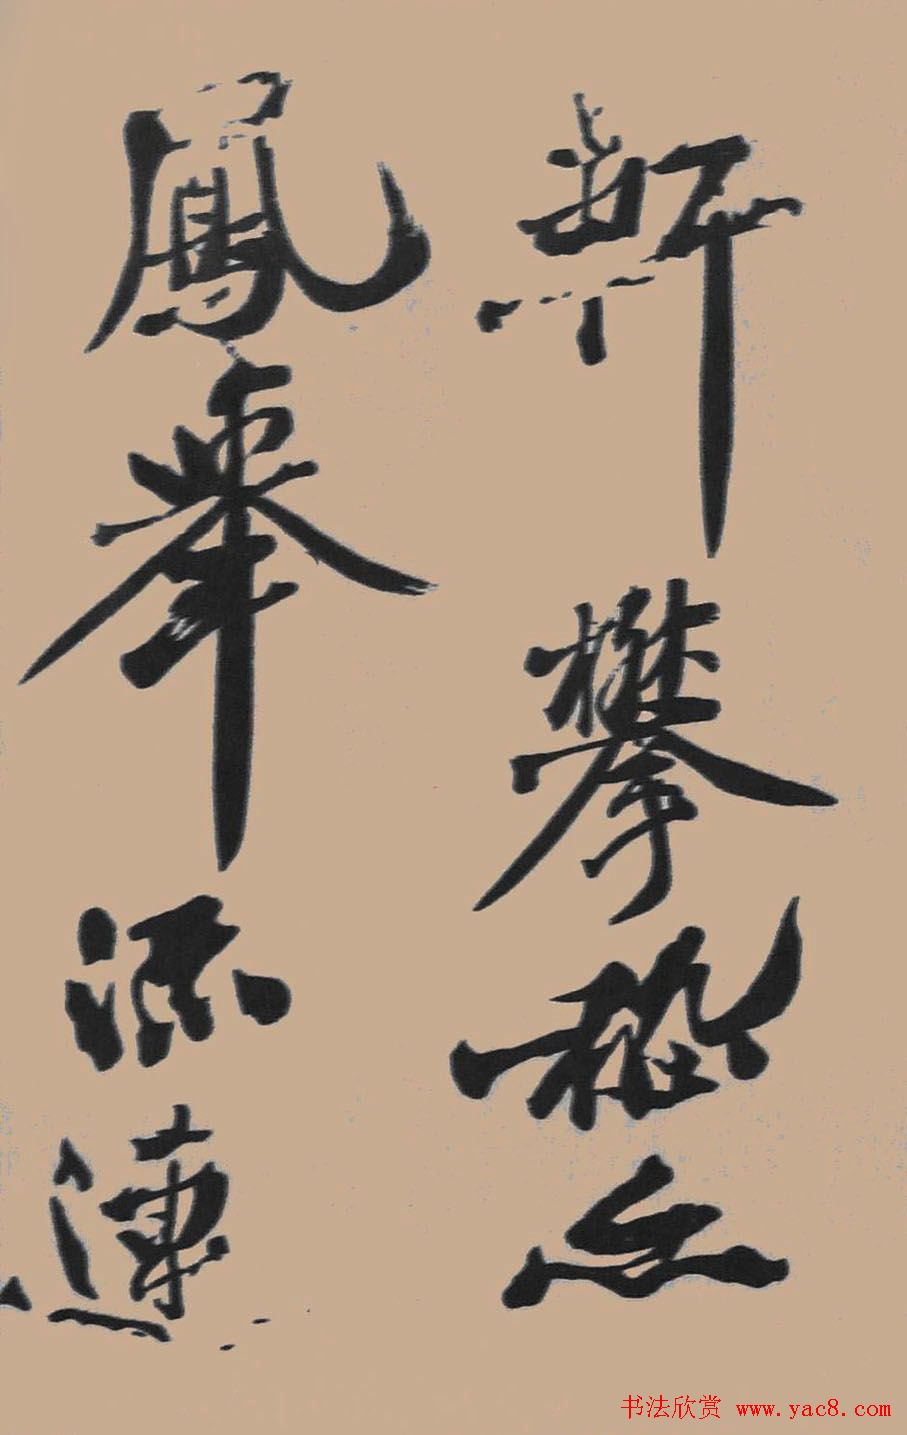 軒攀之
鳳舉流連
书法欣赏 www.yac8.com